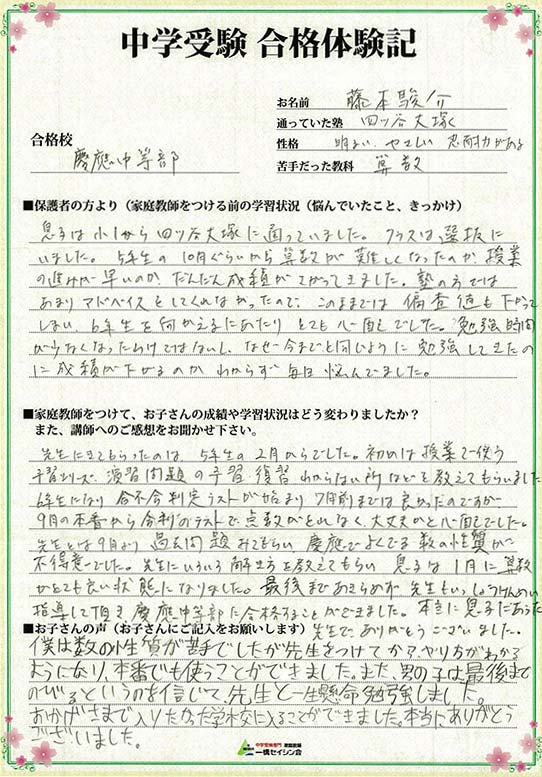 中学受験 合格体験記
お名前 藤本駿介
通っていた塾 四ツ谷大塚
合格校 慶應中等部
性格 明るい やさしい 忍耐力がある
苦手だった教科 算数
■保護者の方より（家庭教師をつける前の学習状況（悩んでいたこと、きっかけ）
息子は小1から四ツ谷大塚に通っていました。クラスは選抜に
いました。5年生の10月ぐらいから算数が難しくなったのか、授業
の進みが早いのか、だんだん成績がさがってきました。塾の方では
あまりアドバイスとしてくれなかったので、このままでは偏差値も下がって
しまい、6年生を向かえるにあたりとても心配でした。勉強時間
が少なくなったわけではないし、なぜ今までと同じように勉強してきたの
に成績が下がるのかわからず毎日悩んでました。
■家庭教師をつけて、お子さんの成績や学習状況はどう変わりましたか？
また、講師へのご感想をお聞かせ下さい。
先生にきてもらったのは、5年生の2月からでした。初めは授業で使う
予習シリーズ、演習問題の予習、復習わからない所などを教えてもらいました。
6年生になり合不合判定テストが始まり7月前までは良かったのですが
9月の本番から合判のテストで点数がとれなく大丈夫かと心配でした。
先生とは9月より過去問題みてもらい慶應でよくでる数の性質が
不得意でした。先生にいろいろ解き方を教えてもらい息子は1月に算数
がとても良い状態になりました。最後まであきらめず先生もいっしょうけんめい
指導して頂き慶應中等部に合格することができました。本当に息子にあった
■お子さんの声（お子さんにご記入をお願いします）先生でありがとうございました。
僕は数の性質が苦手でしたが先生をつけてから、やり方がわかる
ようになり、本番でも使うことができました。また、男の子は最後まで
のびるというのを信じて、先生と一生懸命勉強しました。
おかげさまで入りたかった学校に入ることができました。本当にありがとう
ございました。
中学受験専門 家庭教師
一橋セイシン会